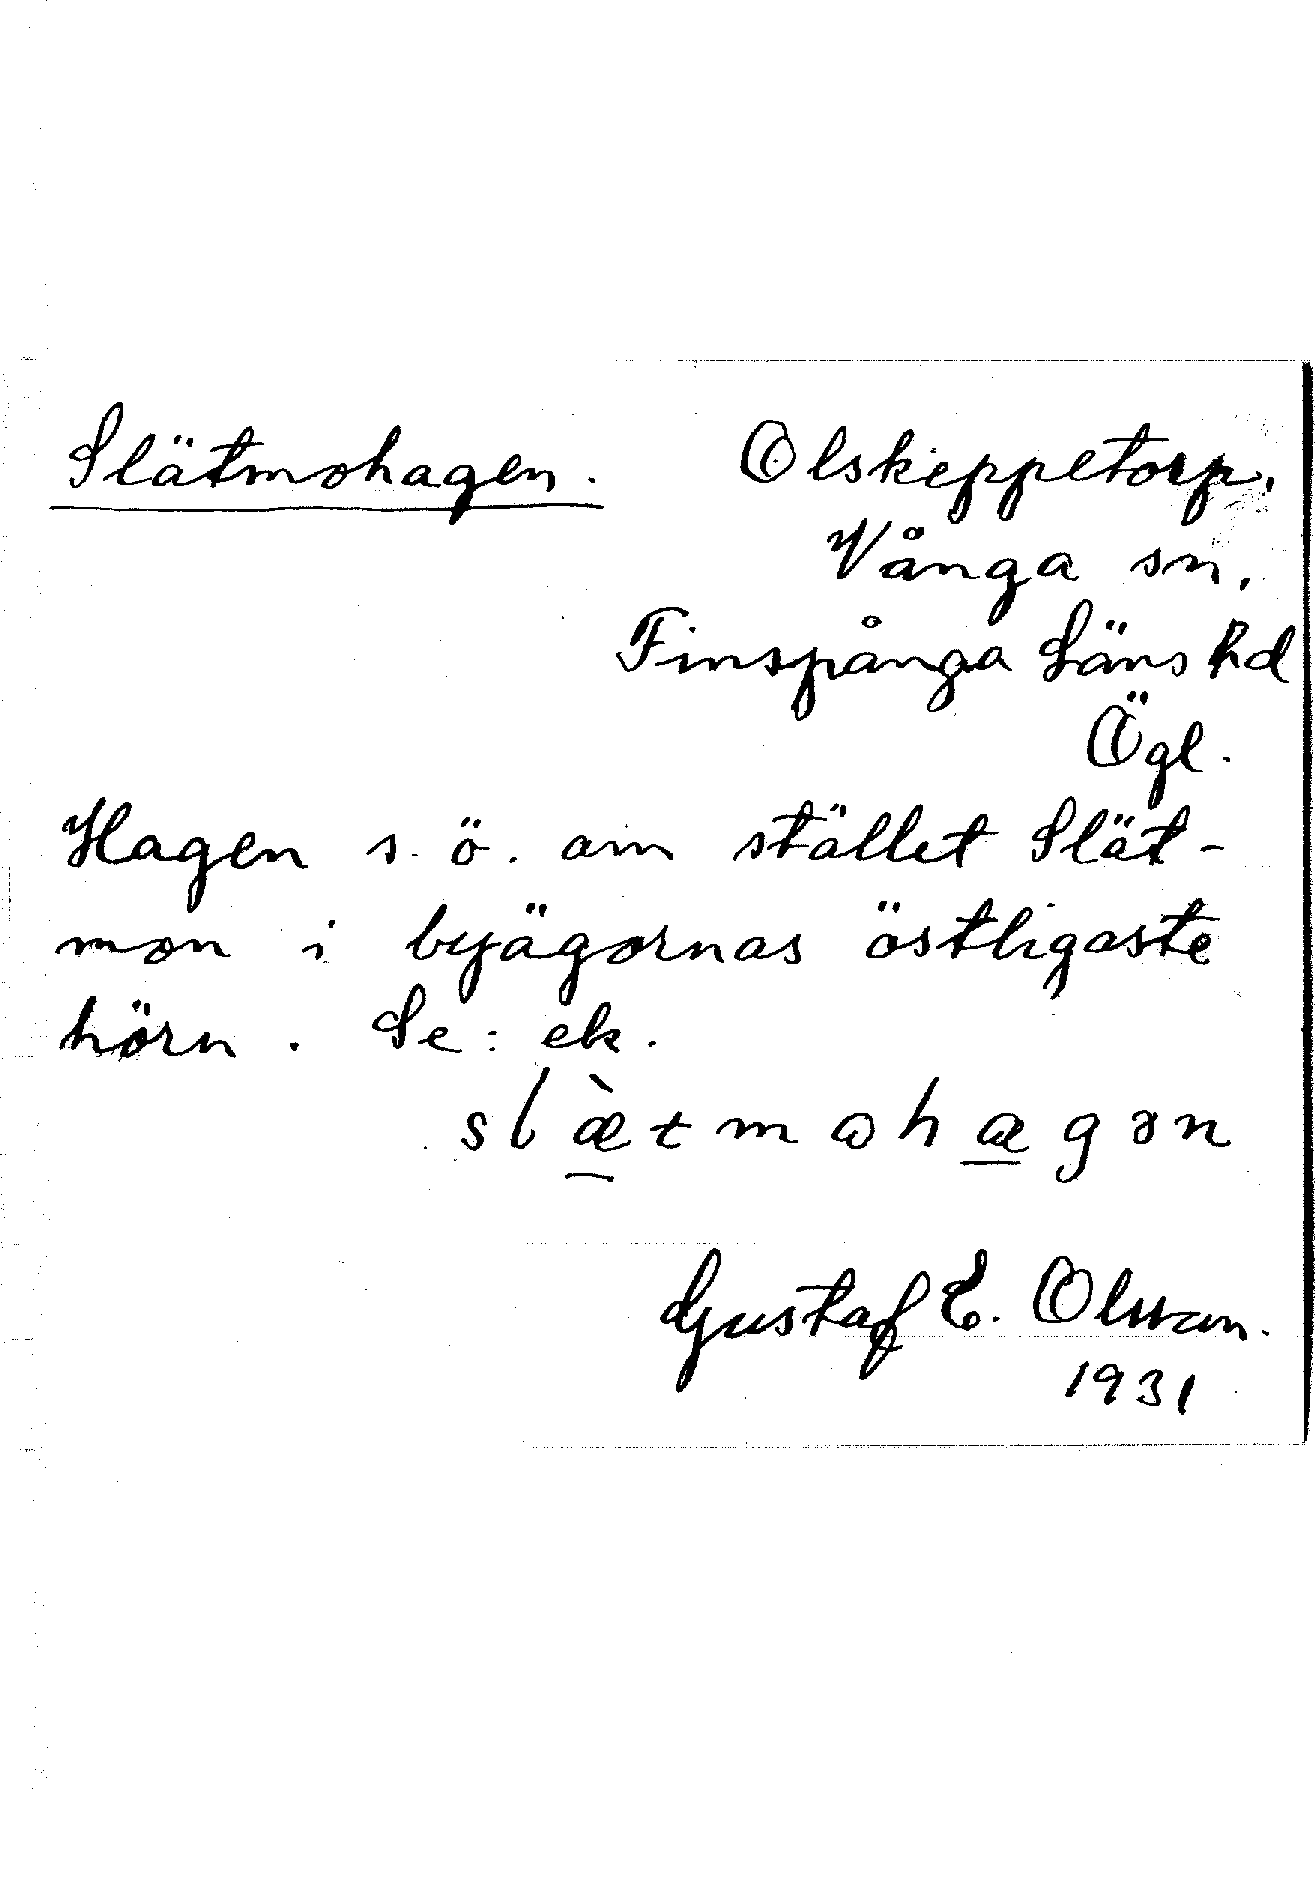 Slätmohagen. Olskeppetorp,
Vånga sn,
Finspånga Läns hd
Ögl.
Hagen s. ö. om stället Slät-
mon i byägornas östligaste
hörn. Se: ek.
slæ̀tmɷhɑgən
Gustaf E. Olsson.
1931